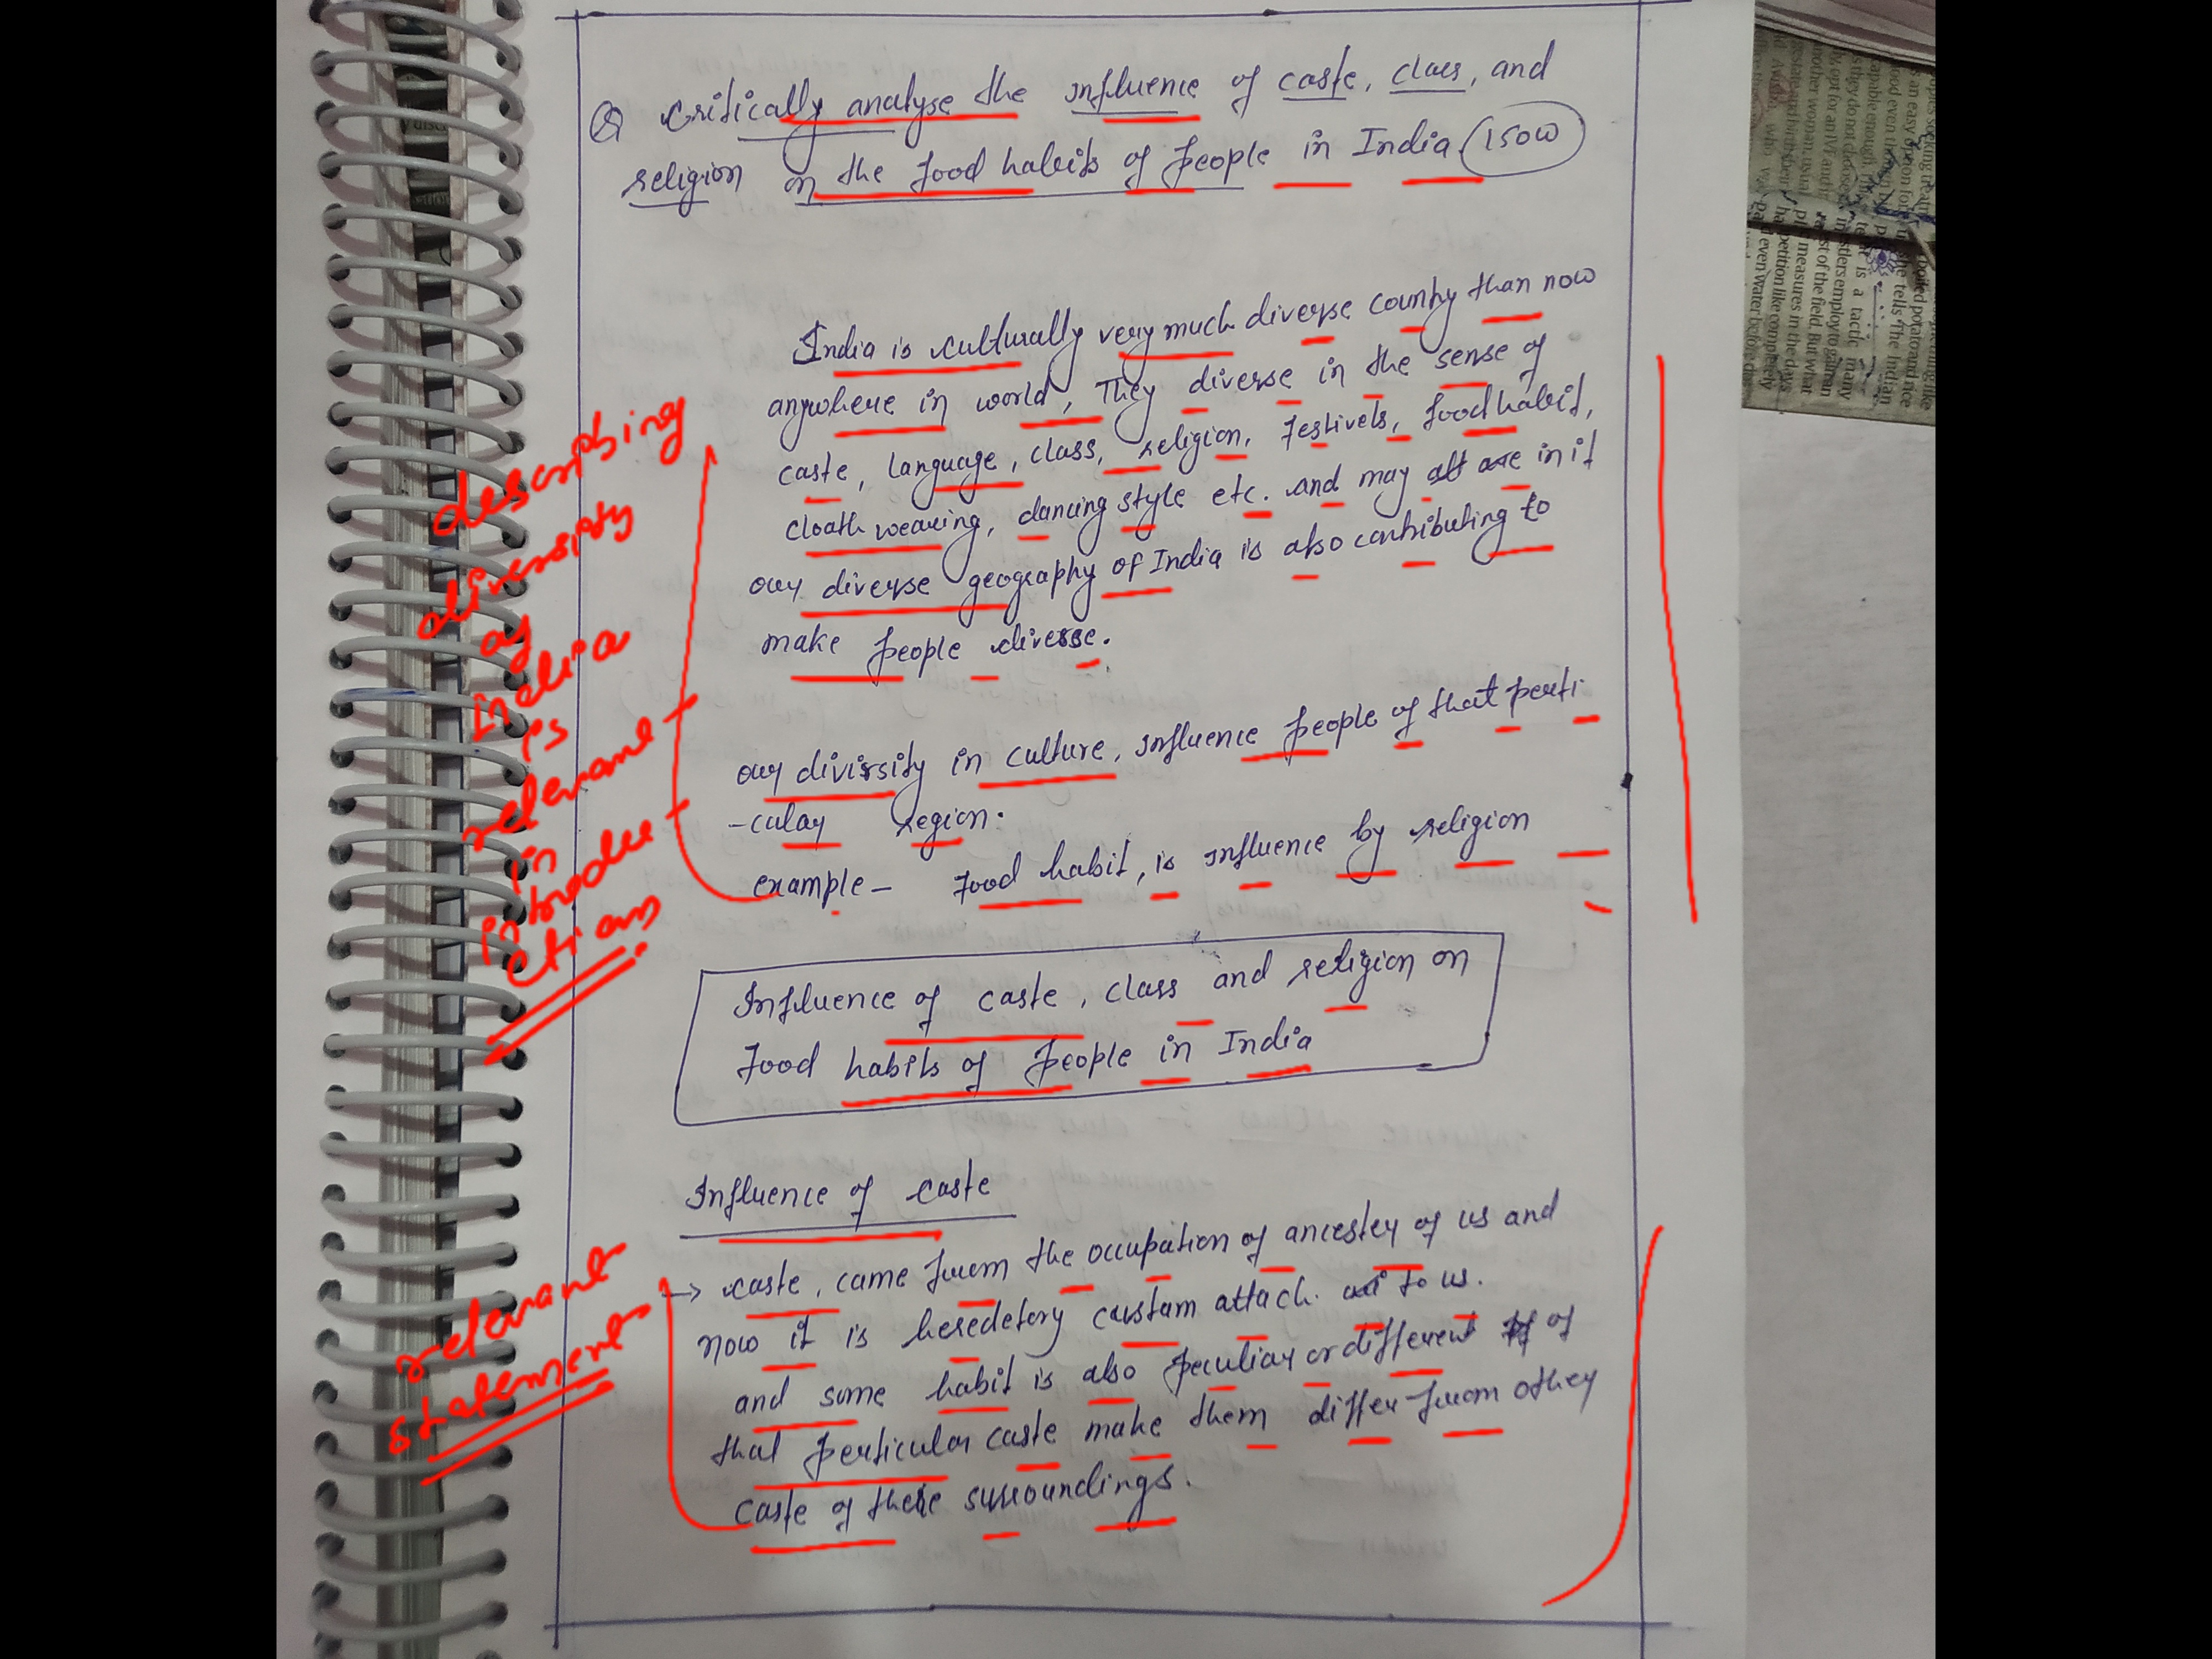 Q critically analyse the influence of caste, class, and
religion on the food habits of people in India. (150w)
India is culturally very much diverse country than now
anywhere in world, They diverse in the sense of
caste, language, class, religion, festivels, food habit,
cloath wearing, dancing style etc. and may are in it
our diverse geography of India is also contributing to
make people diverse.
our divirsity in culture, influence people of that perti-
-cular region.
example - food habit, is influence by religion
Influence of caste, class and religion on
food habits of people in India
Influence of caste
→ caste, came from the occupation of ancestey of us and
now it is heredetory custam attach to us.
and some habit is also peculiar or different of
that perticular caste make them differ from other
caste of there surroundings.
describing
diversity
of
india
is
relevant
in
introdu
ction
relevant
statement